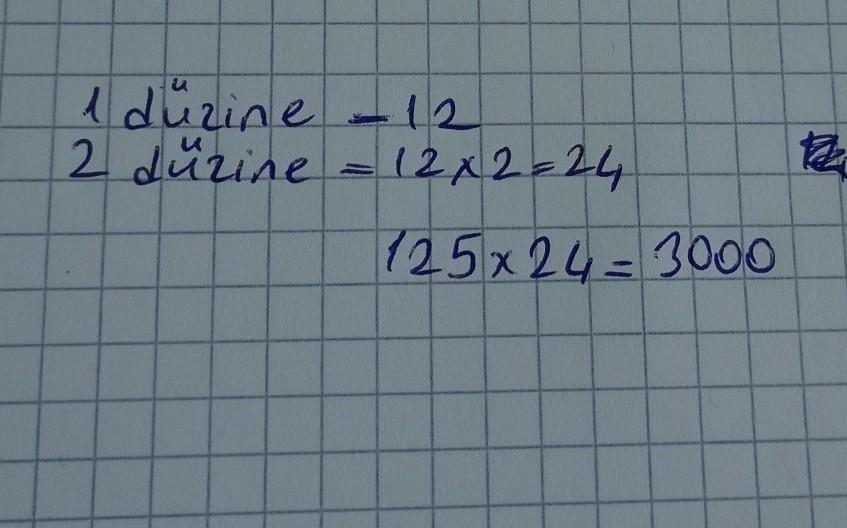 1 düzine - 12
2 düzine = 12 x 2 = 24
125 x 24 = 3000